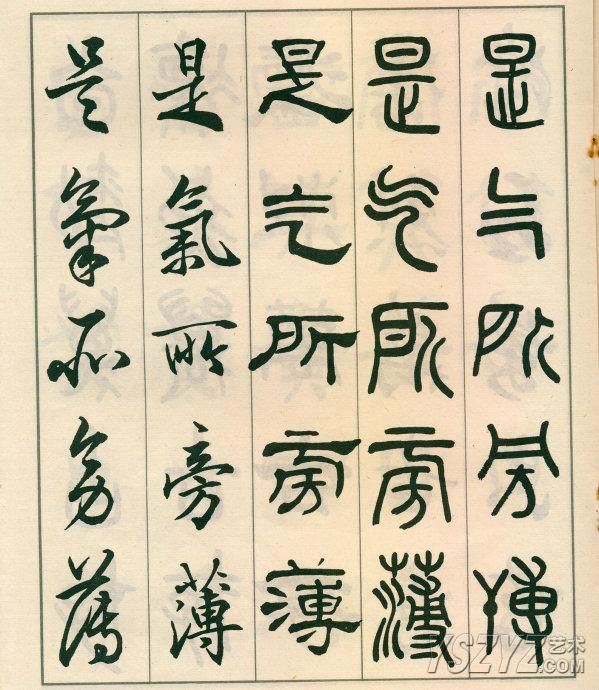 是气所旁
是气所旁薄
是气所旁薄
是氣所旁薄
是氣所旁薄
YSZYZ艺术